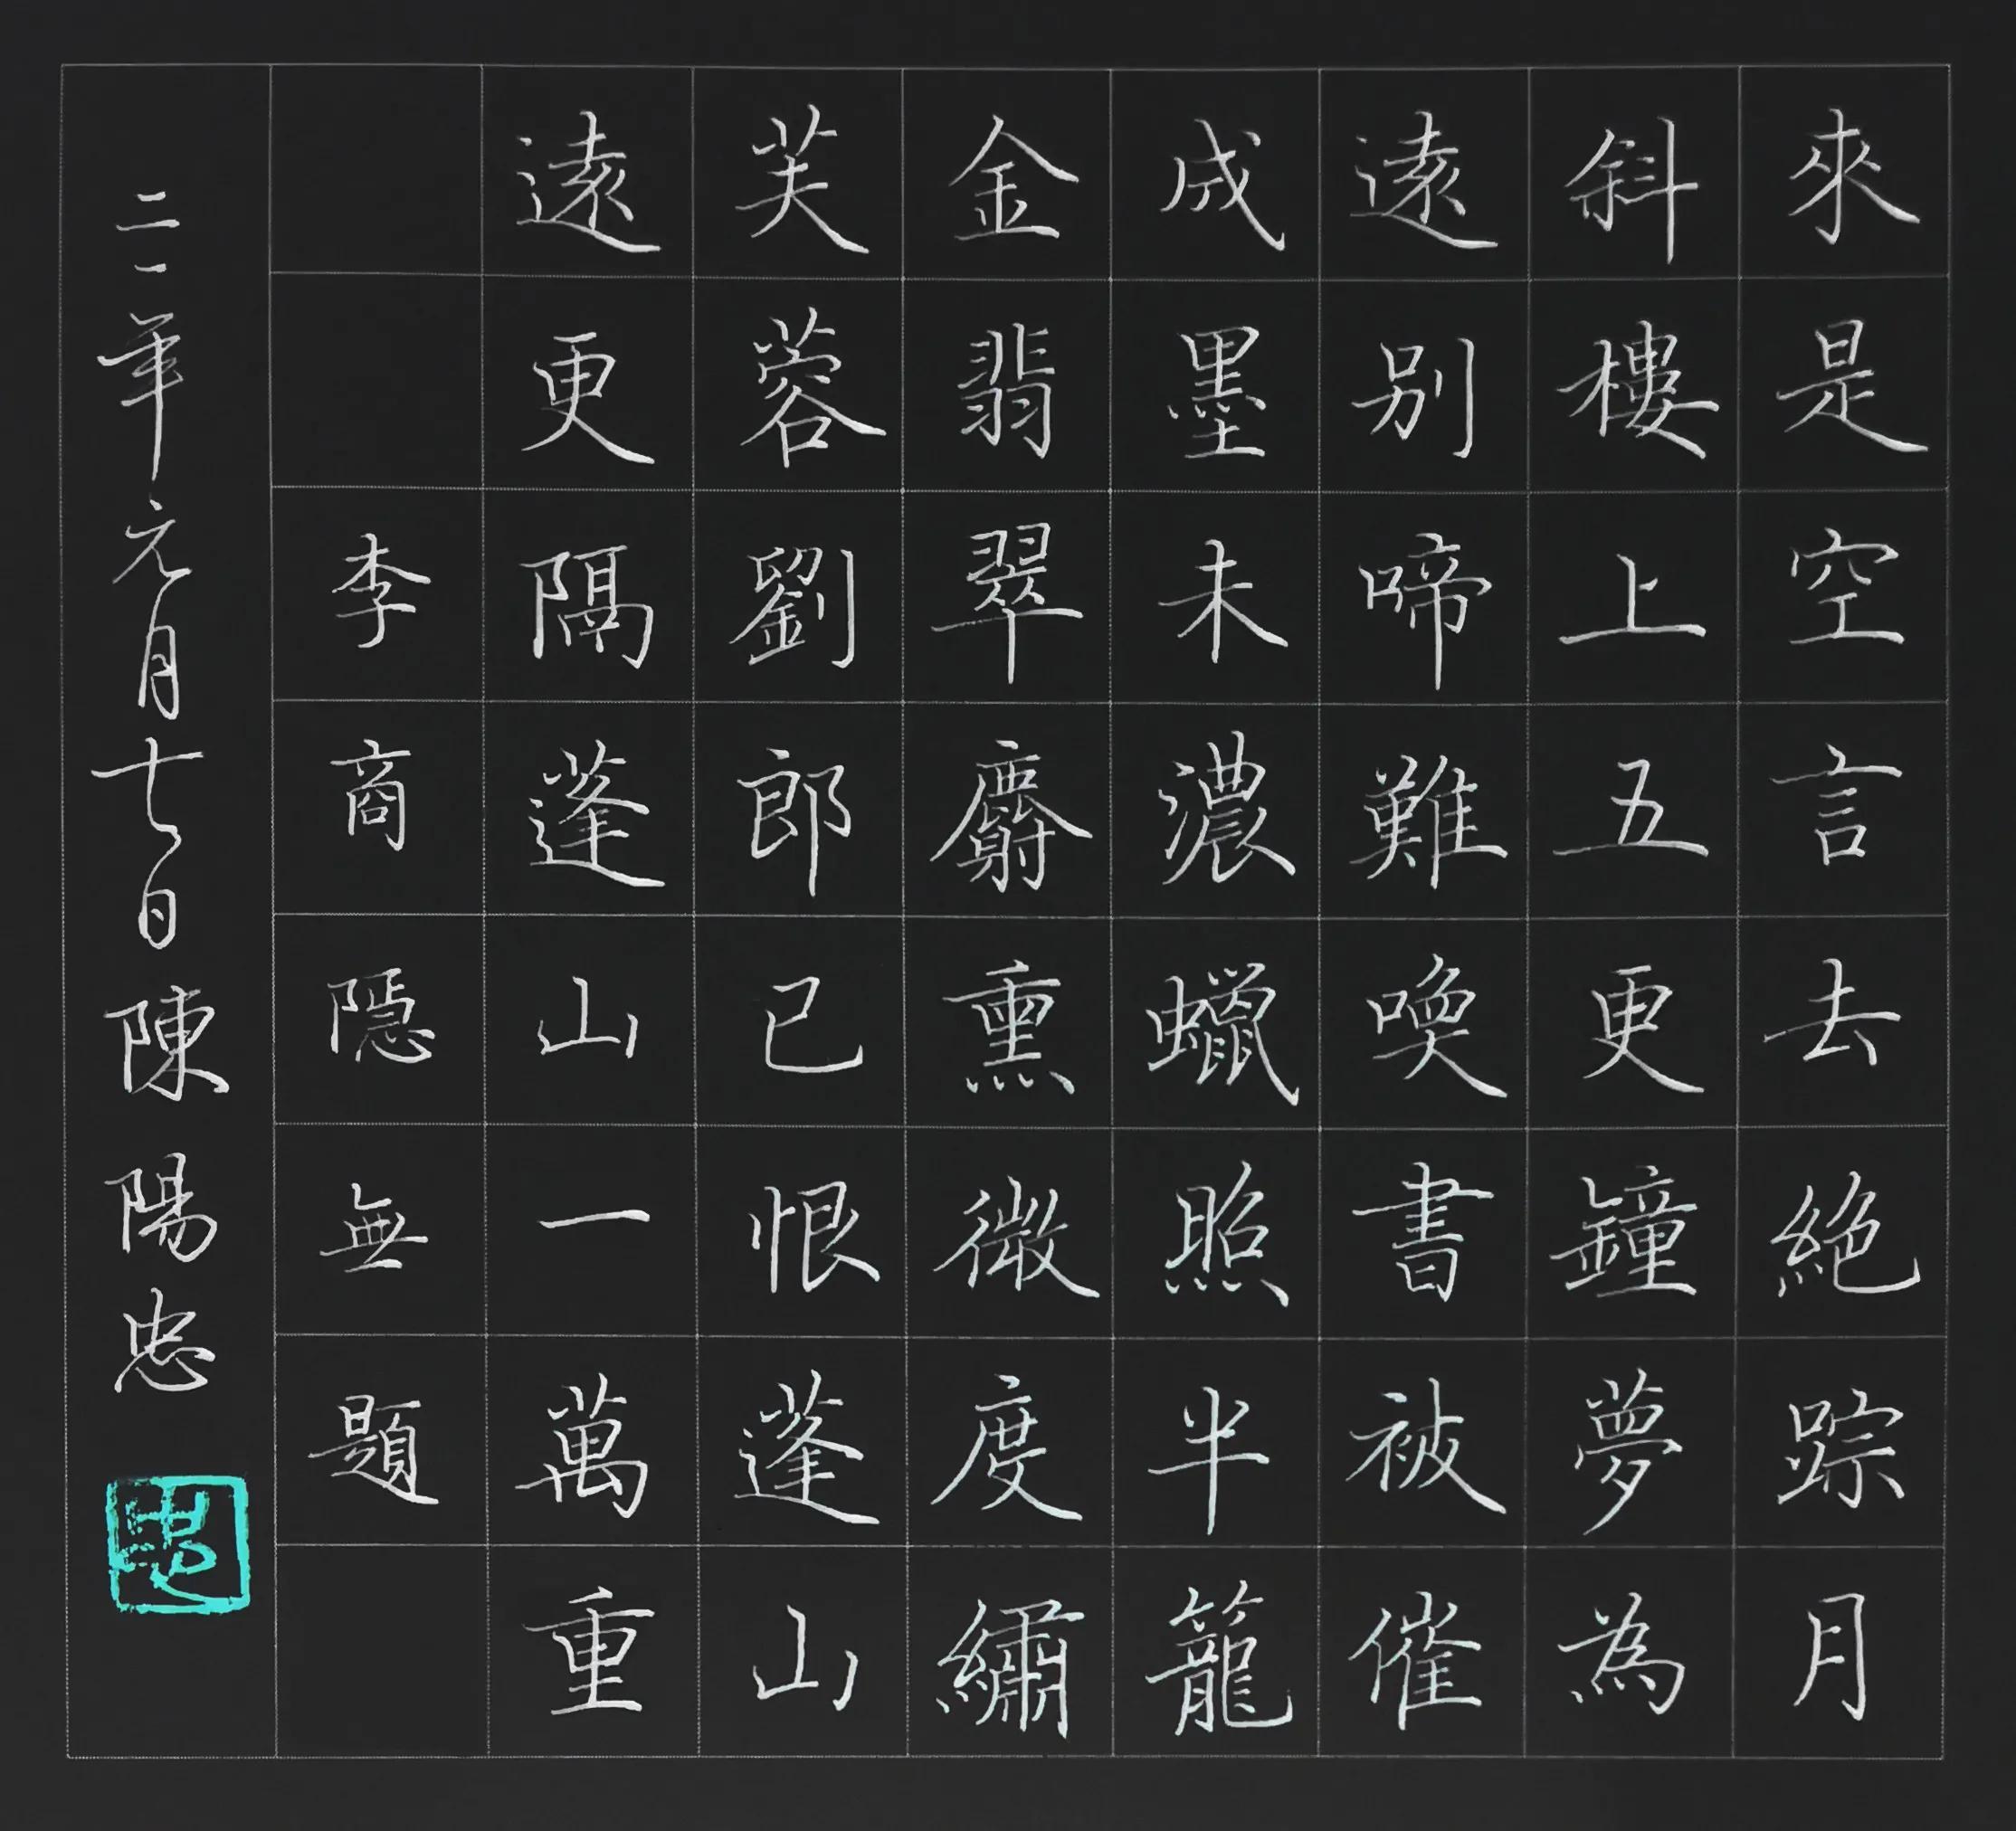 來是空言去絕踪月
斜樓上五更鐘夢為
遠別啼難喚書被催
成墨未濃蠟照半籠
金翡翠麝熏微度繡
芙蓉劉郎已恨蓬山
遠更隔蓬山一萬重
李商隱無題
二二年元月七日陳陽忠
忠